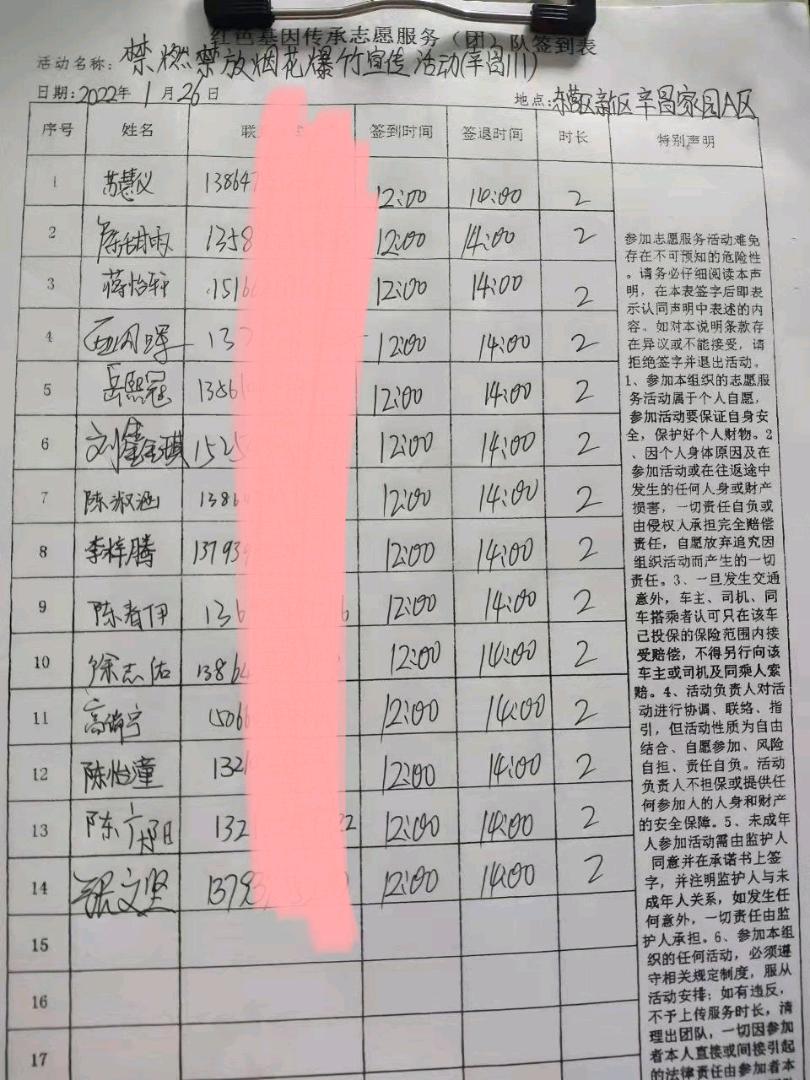 红色基因传承志愿服务（团）队签到表
活动名称：禁燃禁放烟花爆竹宣传活动
日期：2022年1月26日 地点：新区辛昌家园A区
序号 姓名 联 签到时间 签退时间 时长 特别声明
1 苏慧仪 13864 12:00 14:00 2
2 1358 12:00 14:00 2
3 蒋怡轩 1516 12:00 14:00 2
4 137 12:00 14:00 2
5 岳熙冠 1386 12:00 14:00 2
6 刘鑫琪 1525 12:00 14:00 2
7 陈淑涵 1386 12:00 14:00 2
8 李梓腾 13793 12:00 14:00 2
9 陈春伊 136 12:00 14:00 2
10 徐志佑 13864 12:00 14:00 2
11 高瑞宁 1506 12:00 14:00 2
12 陈怡潼 1321 12:00 14:00 2
13 陈 1321 22 12:00 14:00 2
14 张文坚 13793 12:00 14:00 2
15
16
17
参加志愿服务活动难免
存在不可预知的危险性
。请务必仔细阅读本声
明，在本表签字后即表
示认同声明中表述的内
容。如对本说明条款存
在异议或不能接受，请
拒绝签字并退出活动。
1、参加本组织的志愿服
务活动属于个人自愿，
参加活动要保证自身安
全，保护好个人财物。2
、因个人身体原因及在
参加活动或在往返途中
发生的任何人身或财产
损害，一切责任自负或
由侵权人承担完全赔偿
责任，自愿放弃追究因
组织活动而产生的一切
责任。3、一旦发生交通
意外，车主、司机、同
车搭乘者认可只在该车
已投保的保险范围内接
受赔偿，不得另行向该
车主或司机及同乘人索
赔。4、活动负责人对活
动进行协调、联络、指
引，但活动性质为自由
结合、自愿参加、风险
自担、责任自负。活动
负责人不担保或提供任
何参加人的人身和财产
的安全保障。5、未成年
人参加活动需由监护人
同意并在承诺书上签
字，并注明监护人与未
成年人关系，如发生任
何意外，一切责任由监
护人承担。6、参加本组
织的任何活动，必须遵
守相关规定制度，服从
活动安排；如有违反，
不予上传服务时长，清
理出团队，一切因参加
者本人直接或间接引起
的法律责任由参加者本